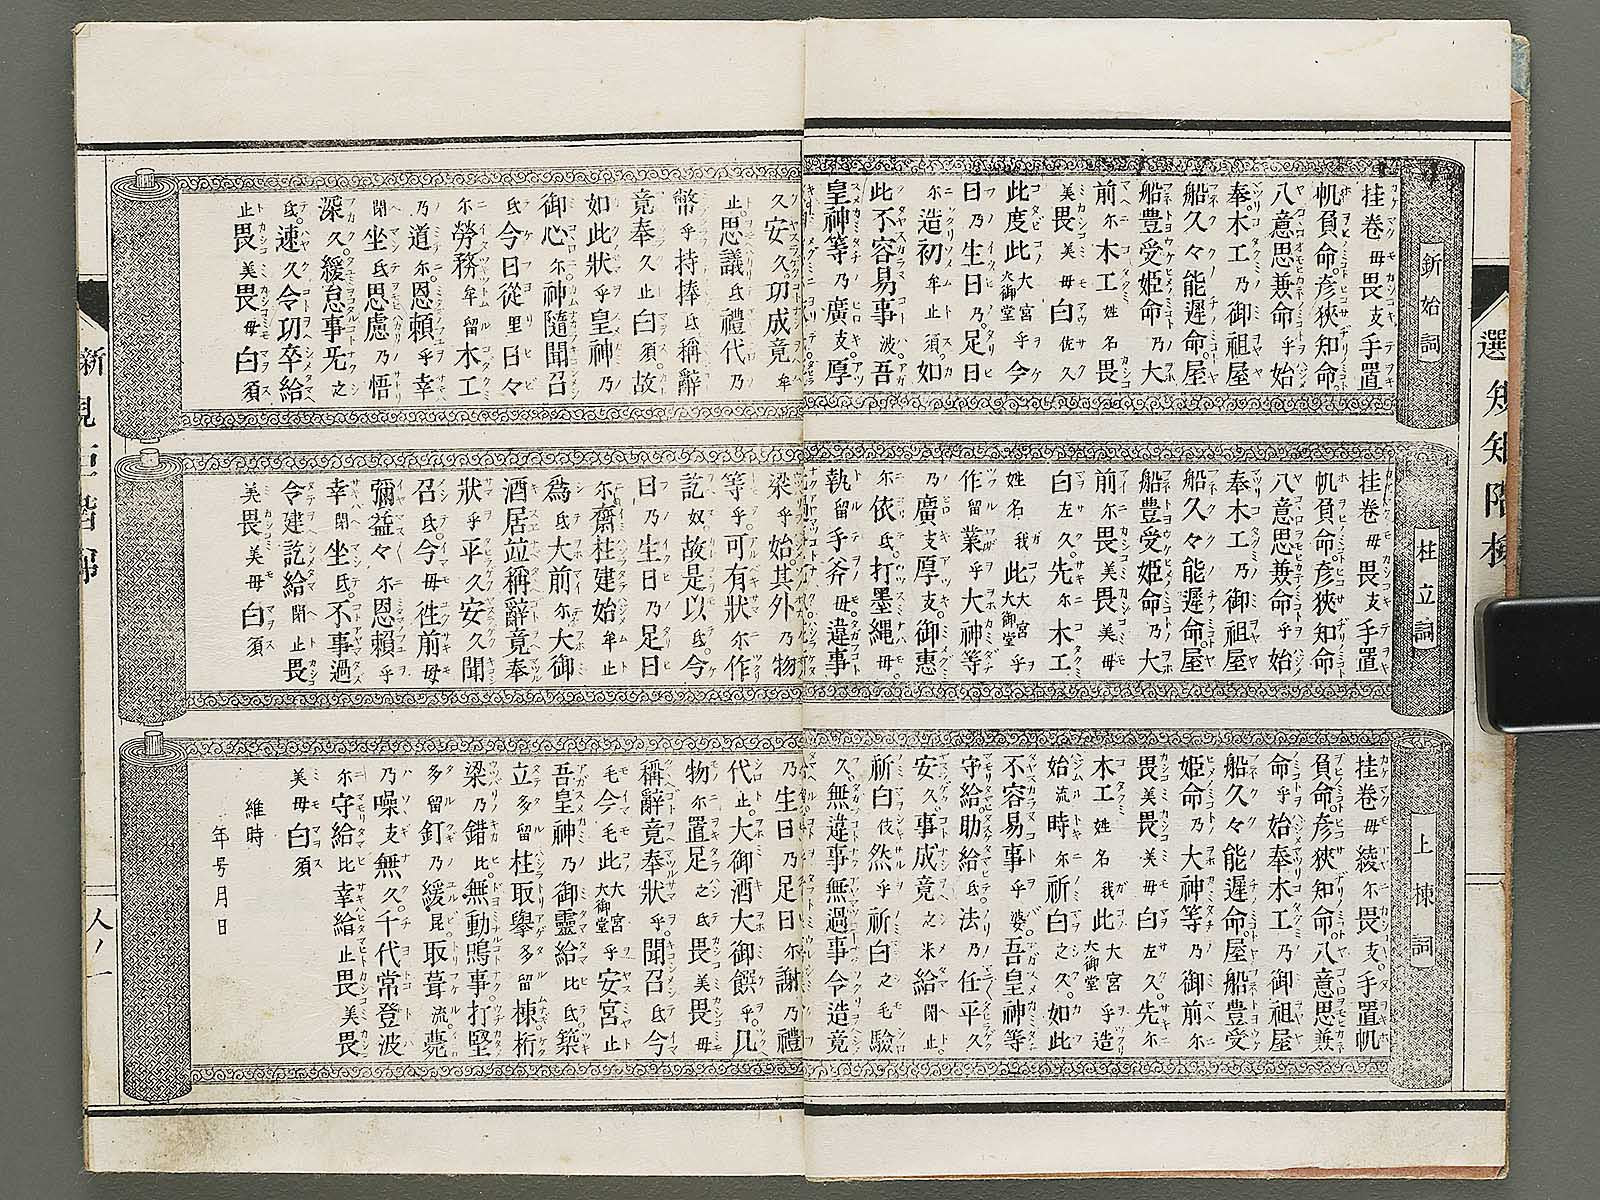 釿始詞
挂巻毋畏支手置
帆負命。彦狭知命。
八意思兼命乎始
奉木工乃御祖屋
船久々能遅命。屋
船豊受姫命乃大
前尓木工姓名畏
美畏美毋白佐久
此度此大宮大御堂乎今
日乃生日乃。足日
尓造初牟止須。如
此不容易事波。吾
皇神等乃廣支。厚
久安久功成竟牟
止。思議氐禮代乃
幣乎持捧氐稱辭
竟奉久止白須。故
如此狀乎皇神乃
御心尓神隨聞召
氐今日從里日々
尓勞務牟留木工
乃道尓恩頼乎幸
閇坐氐思慮乃悟
深久。緩怠事旡之
氐。速久令功卒給
止畏美畏毋白須
柱立詞
挂巻毋畏支手置
帆負命。彦狭知命
八意思兼命乎始
奉木工乃御祖屋
船久々能遅命屋
船豊受姫命乃大
前尓畏美畏美毋
白左久。先尓木工
姓名我此大宮大御堂乎
作留業乎大神等
乃廣支厚支。御惠
尓依氐。打墨縄毋。
執留手斧毋違事
梁乎始。其外乃物
等乎。可有狀尓作
訖奴。故是以氐。今
日乃生日乃足日
尓齋柱建始牟止
爲氐大前尓大御
酒居竝稱辭竟奉
狀乎平久安久聞
召氐。今毋徃前毋
彌益々尓恩頼乎
幸閇坐氐。不事過
令建訖給閇止畏
美畏美毋白須
上棟詞
挂巻毋綾尓畏支。手置帆
負命。彦狭知命。八意思兼
命乎始奉木工乃御祖屋
船久々能遅命。屋船豊受
姫命乃大神等乃御前尓
畏美畏美毋白左久。先尓
木工姓名我此大宮大御堂乎造
始流時尓祈白之久。如此
不容易事乎婆。吾皇神等
守給助給氐。法乃任平久
安久。事成竟之米給閇止。
祈白伎然乎祈白之毛驗
久。無違事無過事令造竟
乃生日乃足日尓謝乃禮
代止。大御酒大御饌乎。几
物尓置足之氐畏美畏毋
稱辭竟奉狀乎。聞召氐今
毛今毛此大宮大御堂乎安宮止
吾皇神乃御靈給比氐築
立多留柱取擧多留棟桁
梁乃錯比。無動鳴事。打堅
多留釘乃緩昆。取葺流。甍
乃噪支無久。千代常登波
尓守給比幸給止畏美畏
美毋白須
維時
年号月日
八ノ一